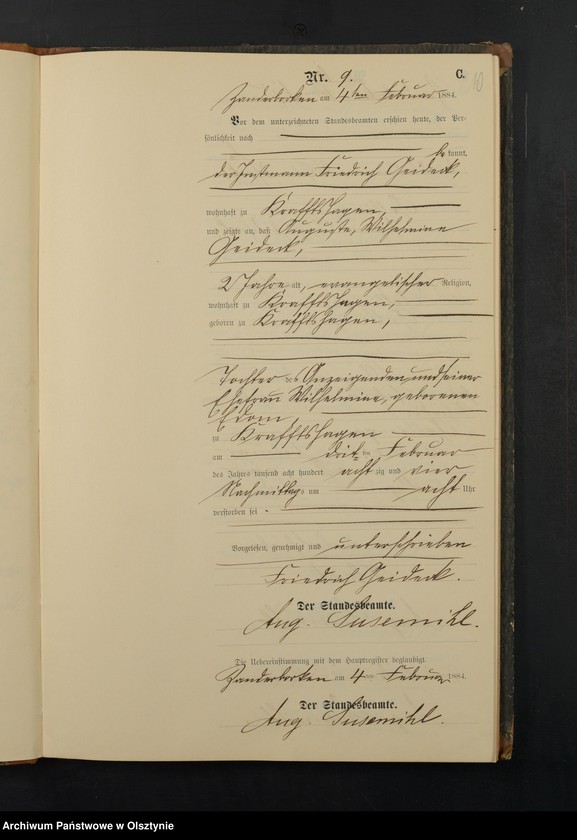 Nr. 9. C. 10
Zanderborken am 4ten Februar 1884.
Vor dem unterzeichneten Standesbeamten erschien heute, der Per-
sönlichkeit nach
bekannt,
der Instmann Friedrich Geideck,
wohnhaft zu Krafftshagen,
und zeigte an, daß Auguste, Wilhelmine
Geideck,
2 Jahre alt, evangelischer Religion,
wohnhaft zu Krafftshagen,
geboren zu Krafftshagen,
Tochter des Anzeigenden und seiner
Ehefrau Wilhelmine, geborenen
zu Krafftshagen
am drit ten Februar
des Jahres tausend acht hundert acht zig und vier
Nachmittags um acht Uhr
verstorben sei.
Vorgelesen, genehmigt und unterschrieben
Friedrich Geideck.
Der Standesbeamte.
Aug. Susemihl.
Die Uebereinstimmung mit dem Hauptregister beglaubigt.
Zanderborken am 4ten Februar 1884.
Der Standesbeamte.
Aug. Susemihl.
Archiwum Państwowe w Olsztynie